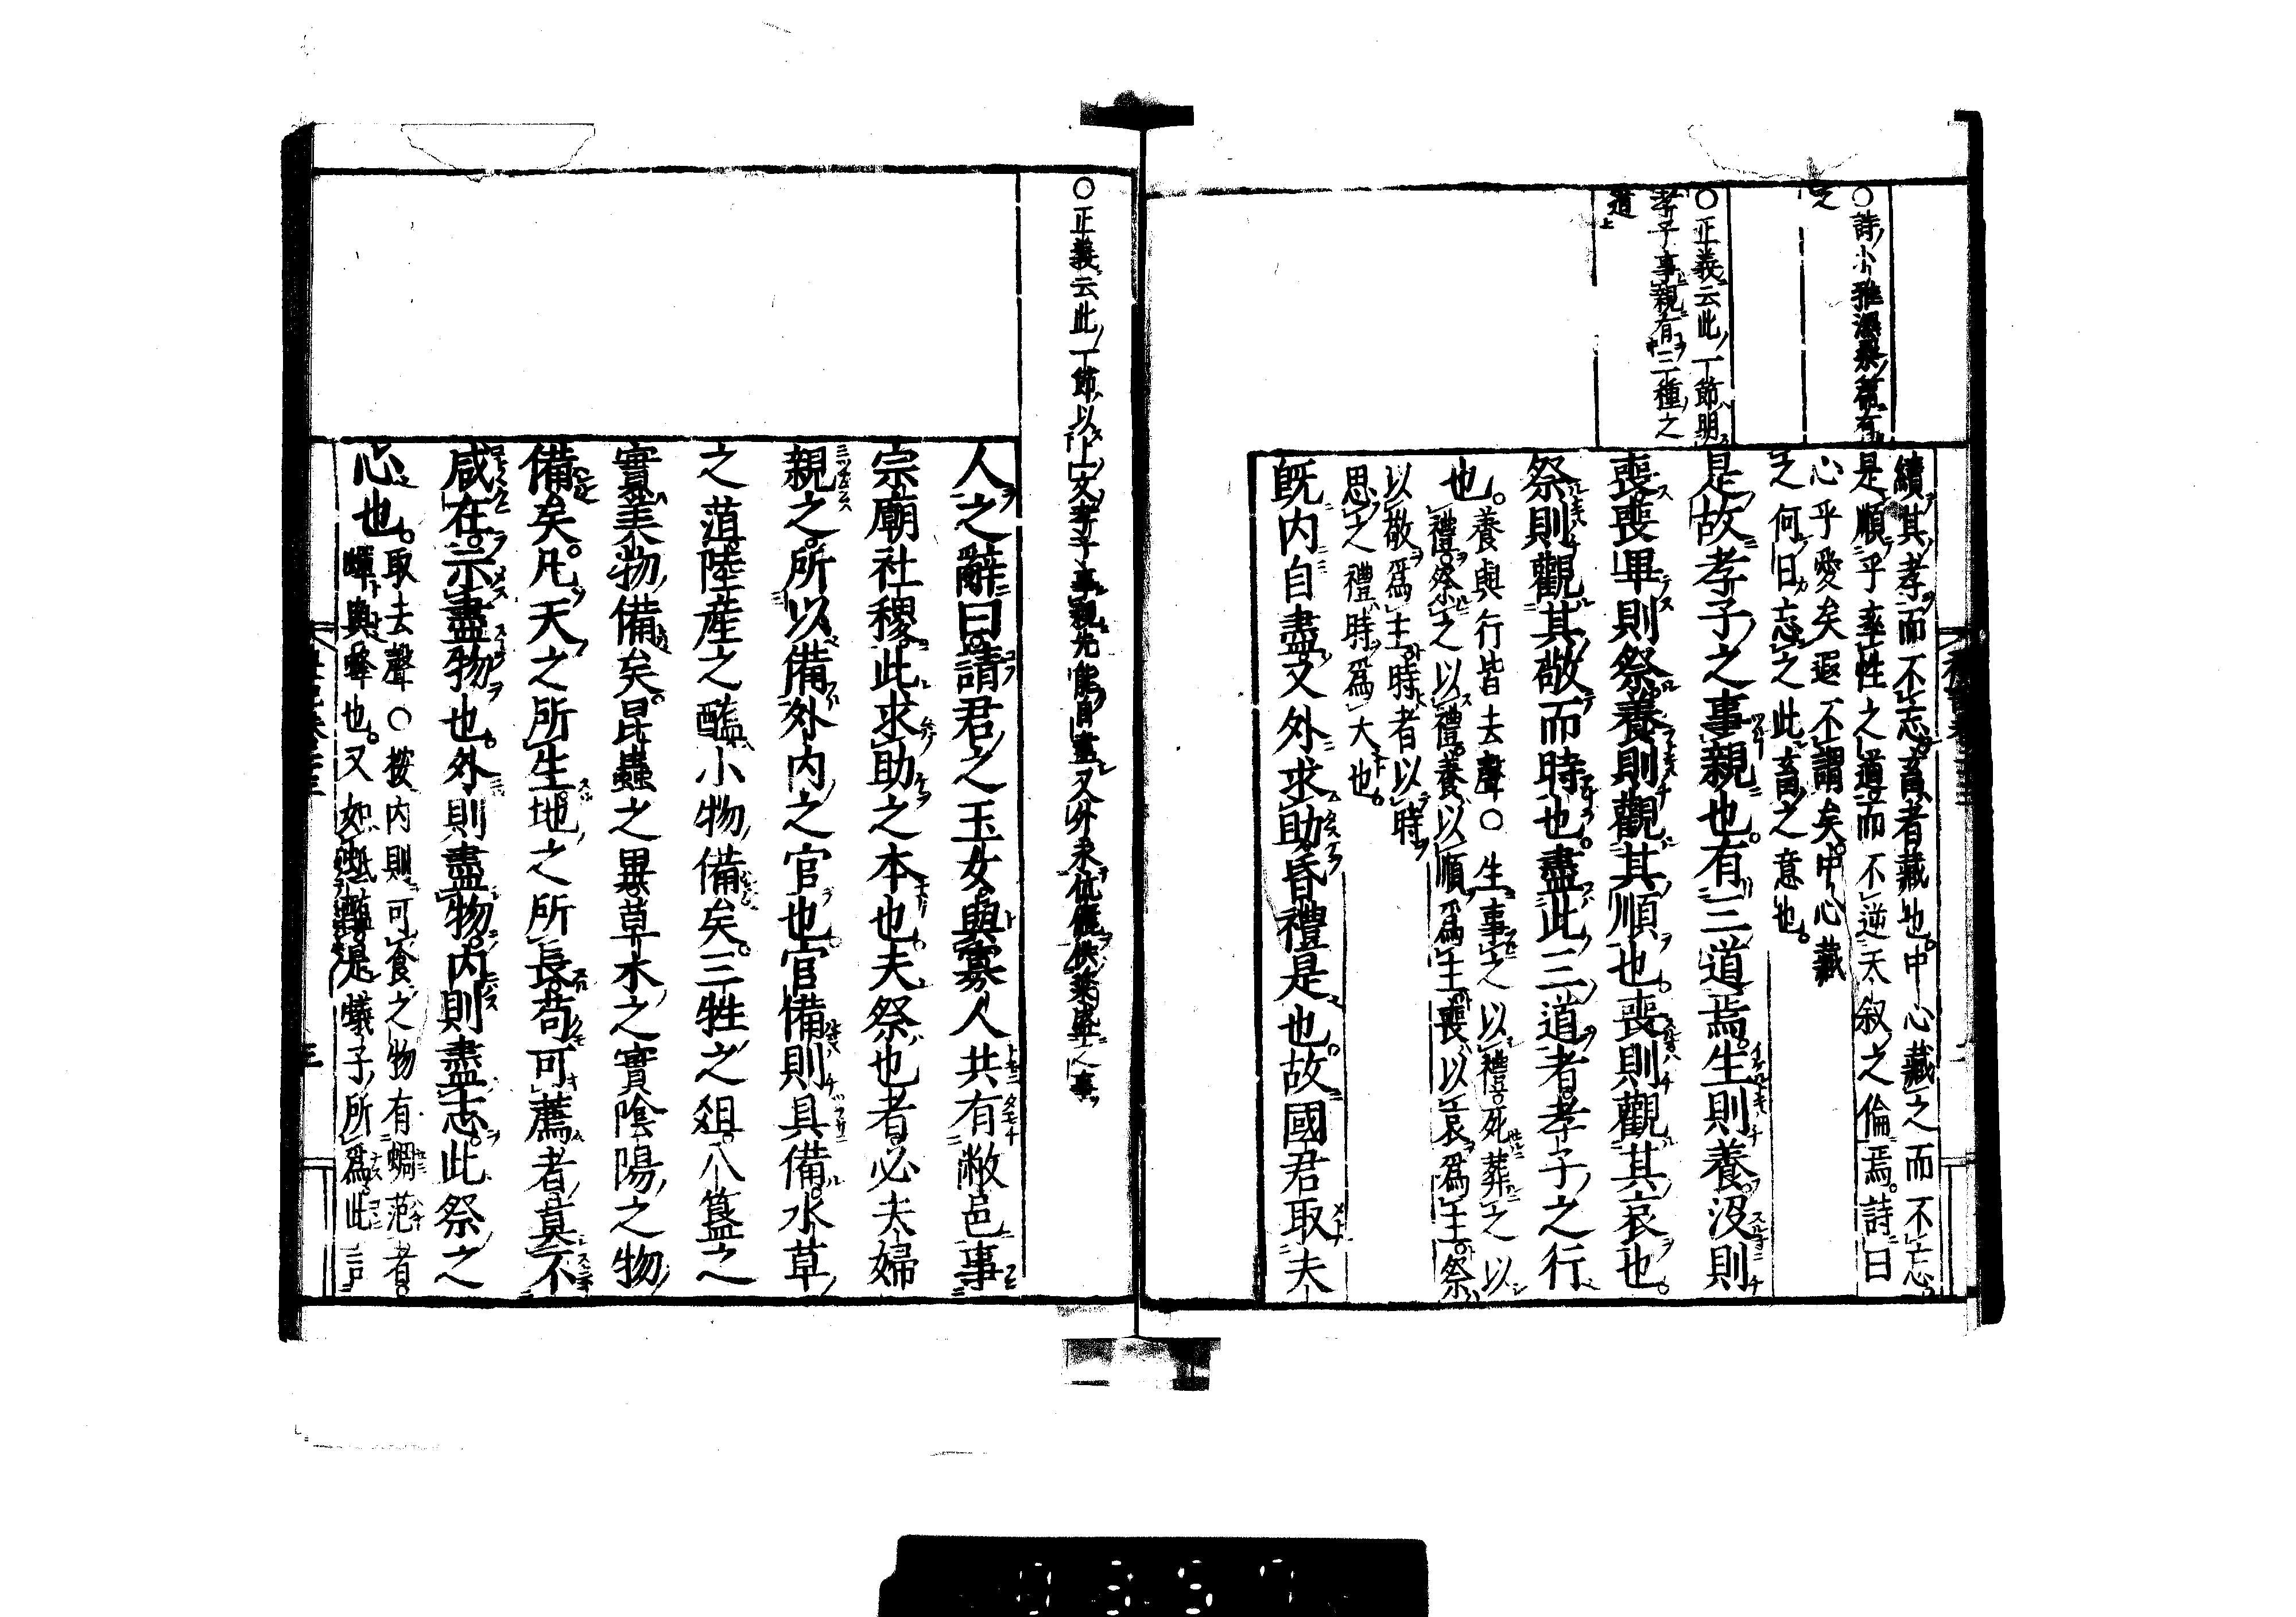 ○詩小雅隰桑篇有
之
○正義云此一節明
孝子事親有三種之
道上
續其孝而不忘畜者藏也中心藏之而不忘
是順乎率性之道而不逆天叙之倫焉詩曰
心乎愛矣遐不謂矣中心藏
之何日忘之此畜之意也
是故孝子之事親也有三道焉生則養沒則
喪喪畢則祭養則觀其順也喪則觀其哀也
祭則觀其敬而時也盡此三道者孝子之行
也養與行皆去聲○生事之以禮死葬之以
禮祭之以禮養以順爲主喪以哀爲主祭
以敬爲主時者以時
思之禮時爲大也
既內自盡又外求助昏禮是也故國君取夫
○正義云此一節以上文孝子事親先能自盡又外求伉儷供粢盛之事
人之辭曰請君之玉女與寡人共有敝邑事
宗廟社稷此求助之本也夫祭也者必夫婦
親之所以備外內之官也官備則具備水草
之菹陸産之醢小物備矣三牲之俎八簋之
實美物備矣昆蟲之異草木之實陰陽之物
備矣凡天之所生地之所長苟可薦者莫不
咸在示盡物也外則盡物內則盡志此祭之
心也取去聲○按內則可食之物有蜩范者
蟬與蜂也又如蚳醢是蟻子所爲此言
三